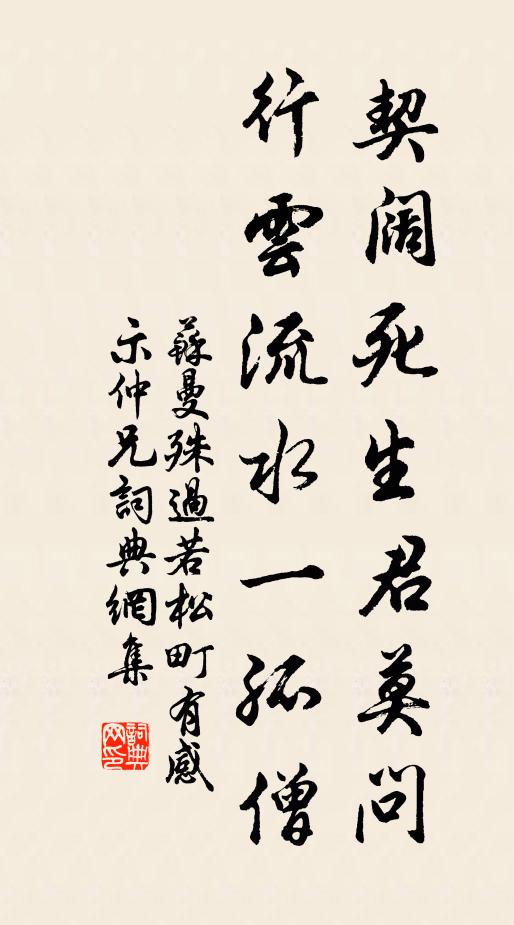 契阔死生君莫問
行雲流水一孤僧
蘇曼殊過若松町有感
示仲兄詞典網集
詞典
网印